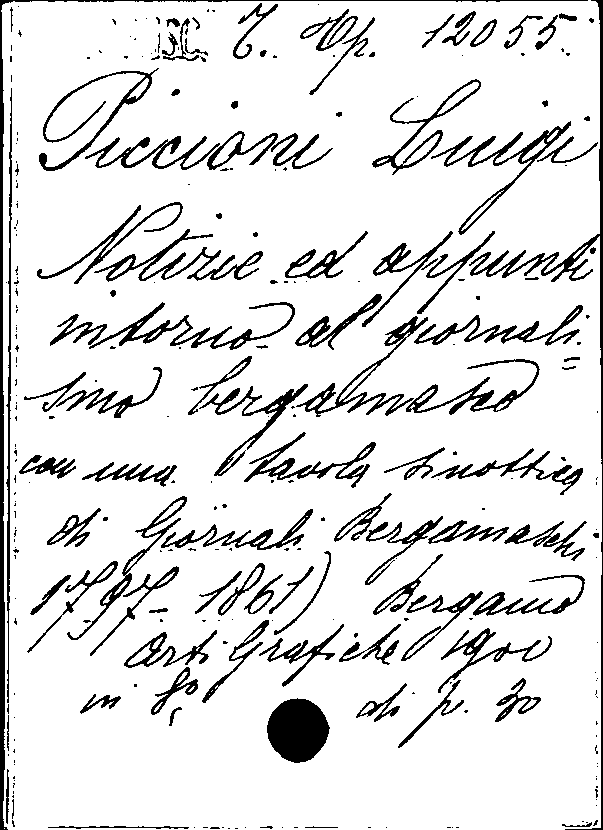 7. Op. 12055.
Piccioni Luigi
Notizie ed appunti
intorno al giornali=
smo bergamasco
con una tavola sinottica
di Giornali Bergamaschi
1797-1861) Bergamo
Arti Grafiche
in 8º di p. 30